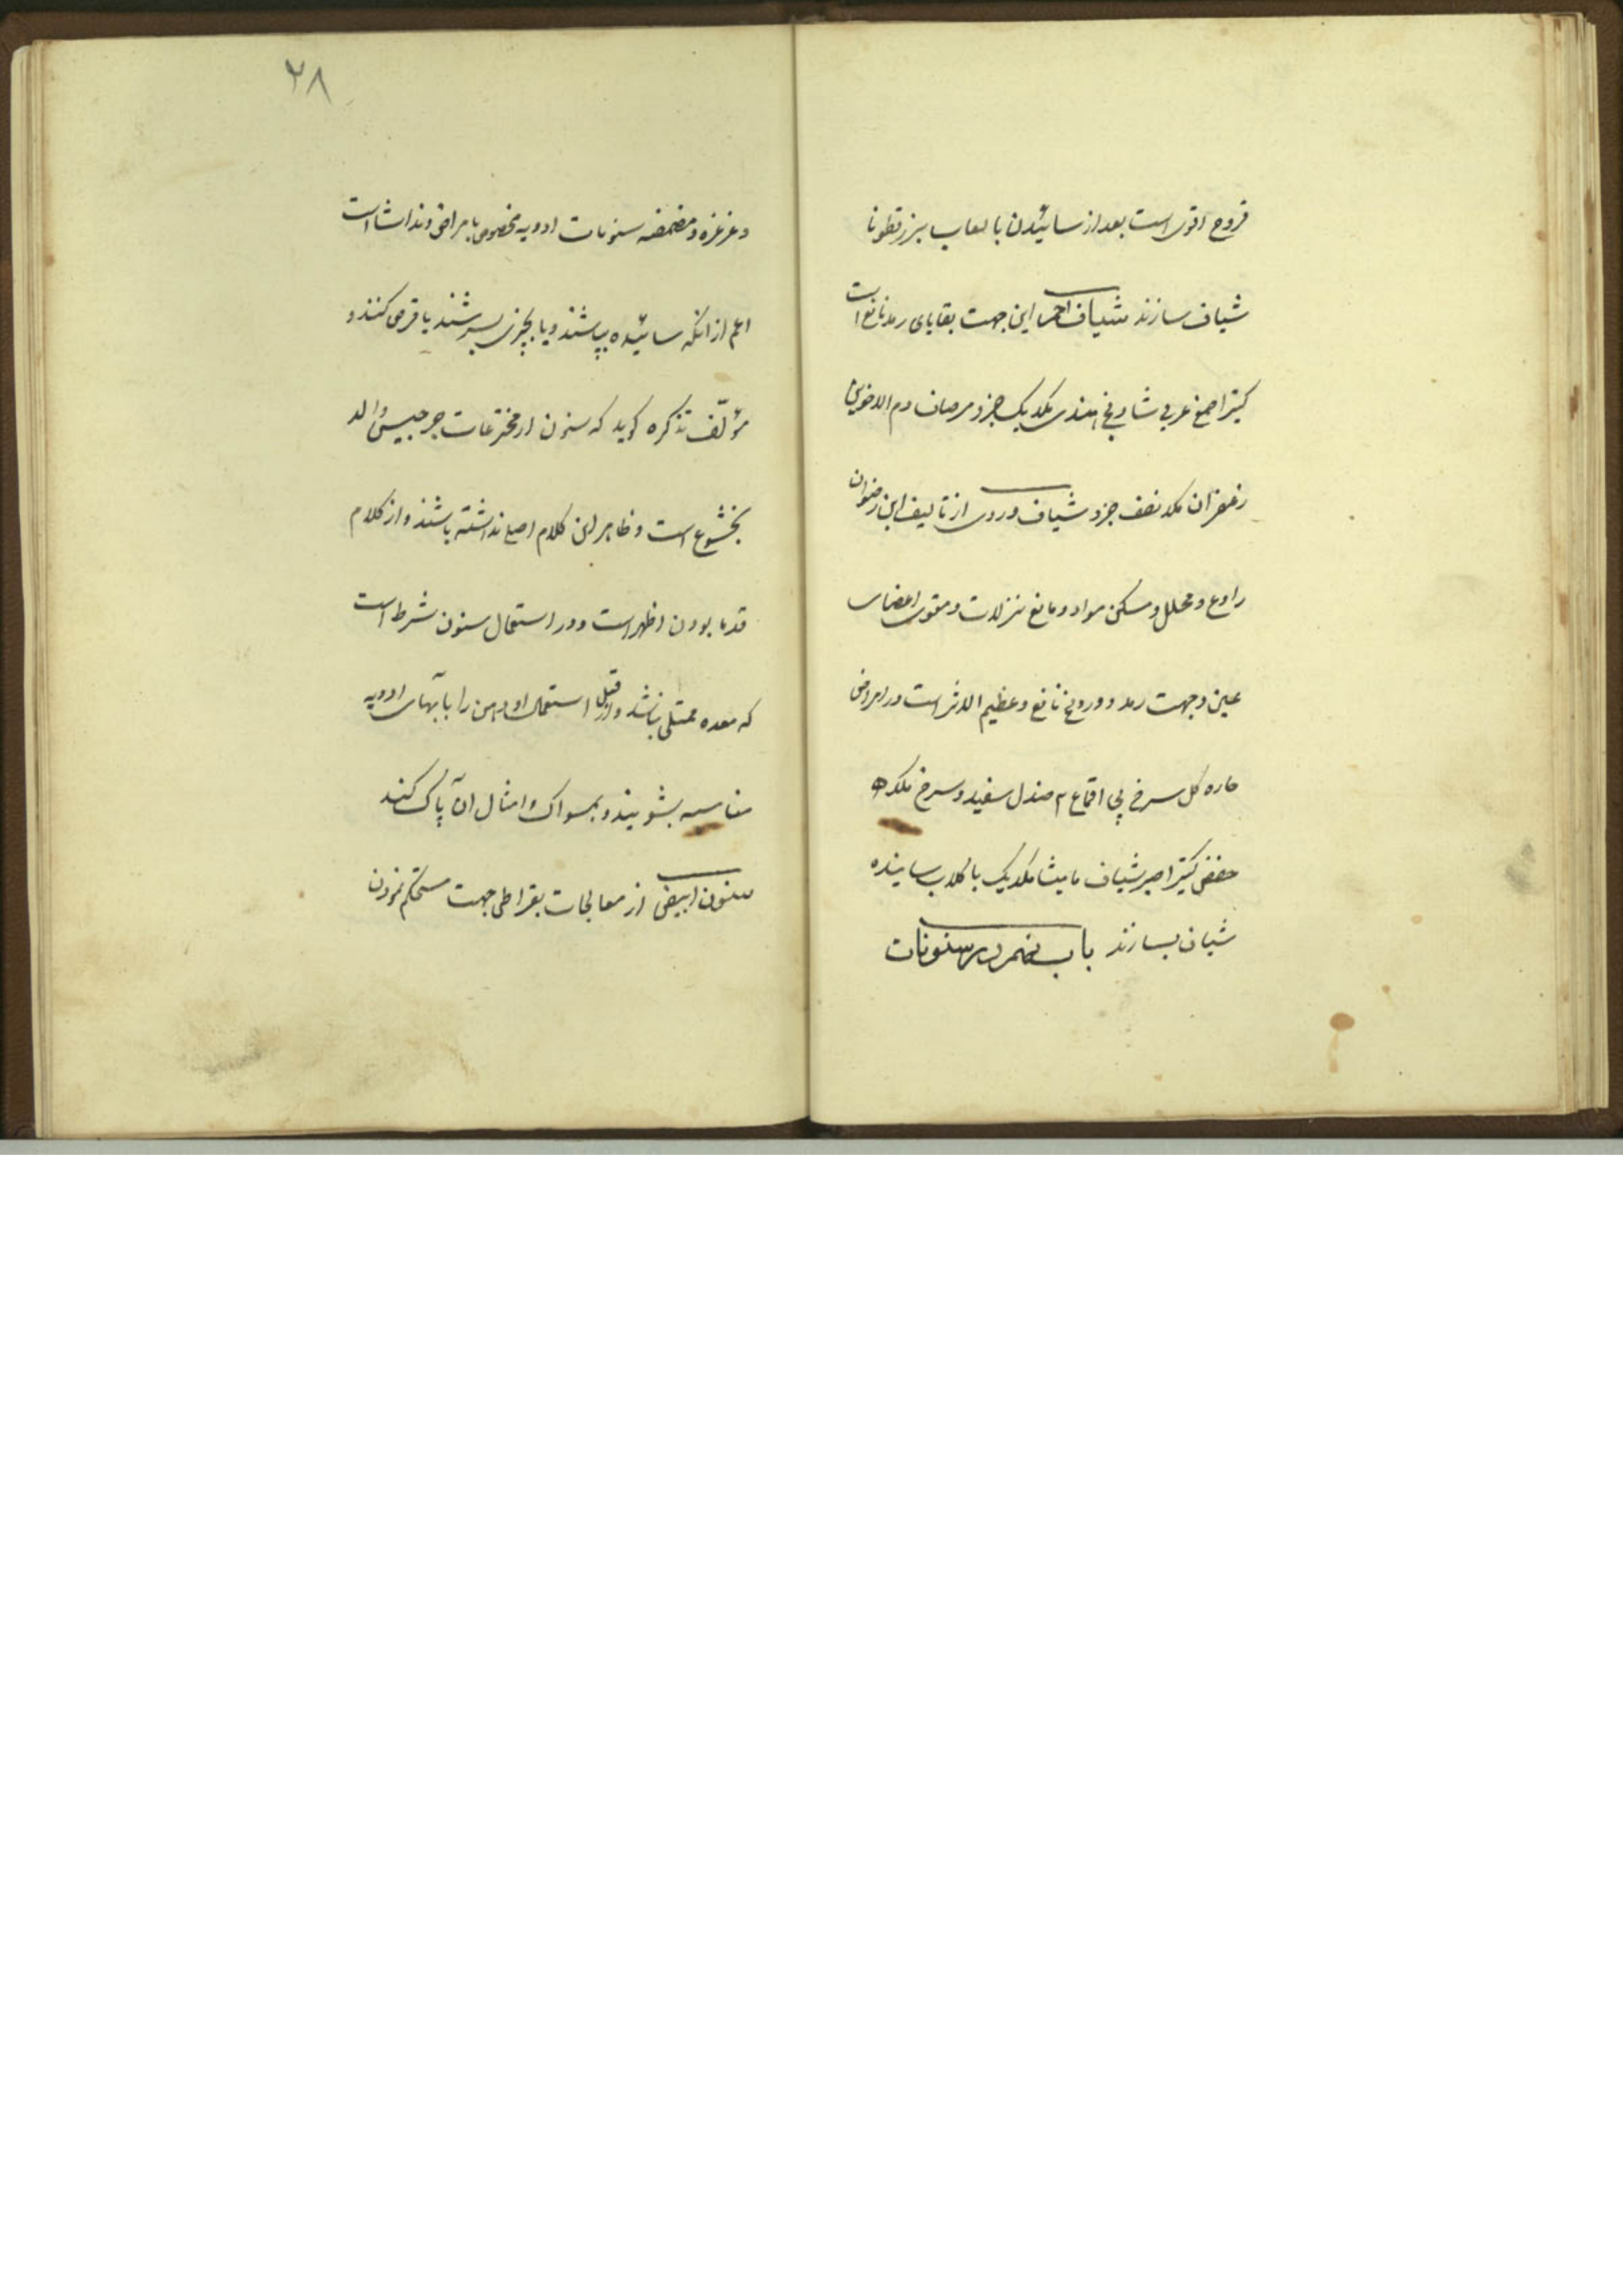 قروح اقوی است بعد از سائیدن با لعاب بزرقطونا
شیاف سازند شیاف احمر این جهت بقایای رمد نافع است
کتیرا صمغ عربی شادنج هندی مکد یک جزو مرصاف دم الاخوین
زعفران مکد نصف جزو شیاف وردی از تالیف ابن رضوان
رادع و محلل و مسکن مواد و مانع نزلات و مقوی اعضای
عین و جهت رمد و وردینج نافع و عظیم الاثر است در امراض
حاره کل سرخ بی اقماع م صندل سفید و سرخ مکد
حضض کتیرا صبر شیاف مامیثا مکد یک با کلاب سائیده
شیاف بسازند باب نهم در سنونات
۲۸
و غرغره و مضمضه سنونات ادویه مخصوص بامراض دندانست
اعم از انکه سائیده بپاشند و یا بچیزی بسرشند یا قرص کنند و
مؤلف تذکره کوید که سنون از مخترعات جرجیس والد
بختشوع است و ظاهر این کلام اصلی نداشته باشند و از کلام
قدما بودن اظهر است و در استعمال سنون شرط است
که معده ممتلی نباشد و از قبل استعمال او دهن را بابهای ادویه
مناسبه بشویند و بمسواک و امثال آن پاک کنند
سنون ابیض از معالجات بقراطی جهت مستحکم نمودن